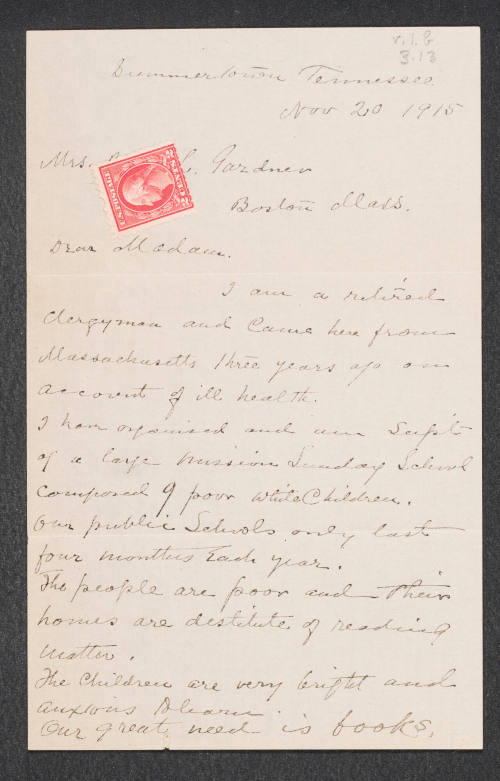 v. 1. G
3.13
Summertown Tennessee.
Nov 20 1915
Mrs. C. Gardner
Boston Mass.
U.S. POSTAGE
2 CENTS 2
Dear Madam.
I am a retired
Clergyman and Came here from
Massachusetts three years ago on
account of ill health.
I have organised and am Sup't
of a large Mission Sunday School
composed of poor white Children.
Our public Schools only last
four months Each year.
The people are poor and their
homes are destitute of reading
matter.
The Children are very bright and
anxious to learn.
Our great need is books.